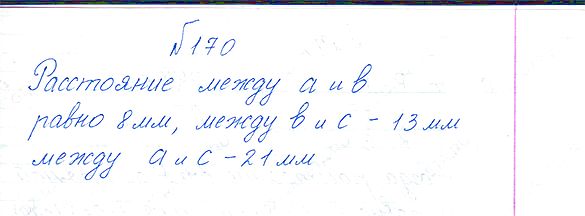 №170
Расстояние между а и в
равно 8 мм, между в и с - 13 мм
между а и с - 21 мм